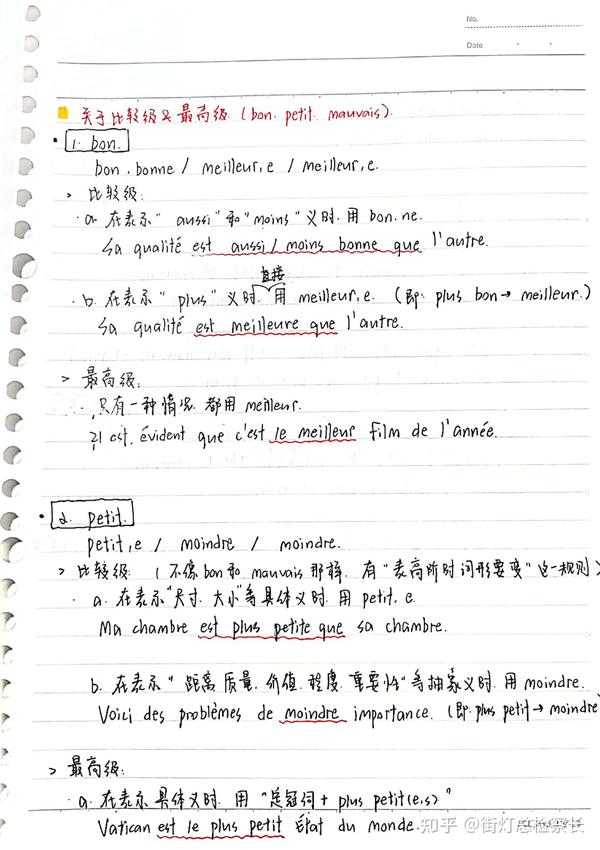 No.
Date
关于比较级又最高级.(bon. petit. mauvais).
1. bon.
bon, bonne / meilleur,e / meilleur,e.
> 比较级:
a. 在表示" aussi"和"moins"义时.用 bon.ne.
Sa qualité est aussi/ moins bonne que l'autre.
直接
b. 在表示" plus"义时.用 meilleur,e. (即: plus bon→ meilleur.)
Sa qualité est meilleure que l'autre.
> 最高级:
只有一种情况.都用 meilleur.
Il est évident que c'est le meilleur film de l'année.
2. petit.
petit,e / moindre / moindre.
> 比较级: (不像bon和 mauvais 那样,有"表高阶时词形要变"这一规则)
a. 在表示"尺寸.大小"等具体义时.用 petit.e.
Ma chambre est plus petite que sa chambre.
b. 在表示" 距离.质量.价值.程度.重要性"等抽象义时.用 moindre.
Voici des problèmes de moindre importance. (即:plus petit→moindre)
> 最高级:
a. 在表示具体义时.用 "定冠词+ plus petit(e.s)"
Vatican est le plus petit État du monde.
知乎 @街灯总检察长